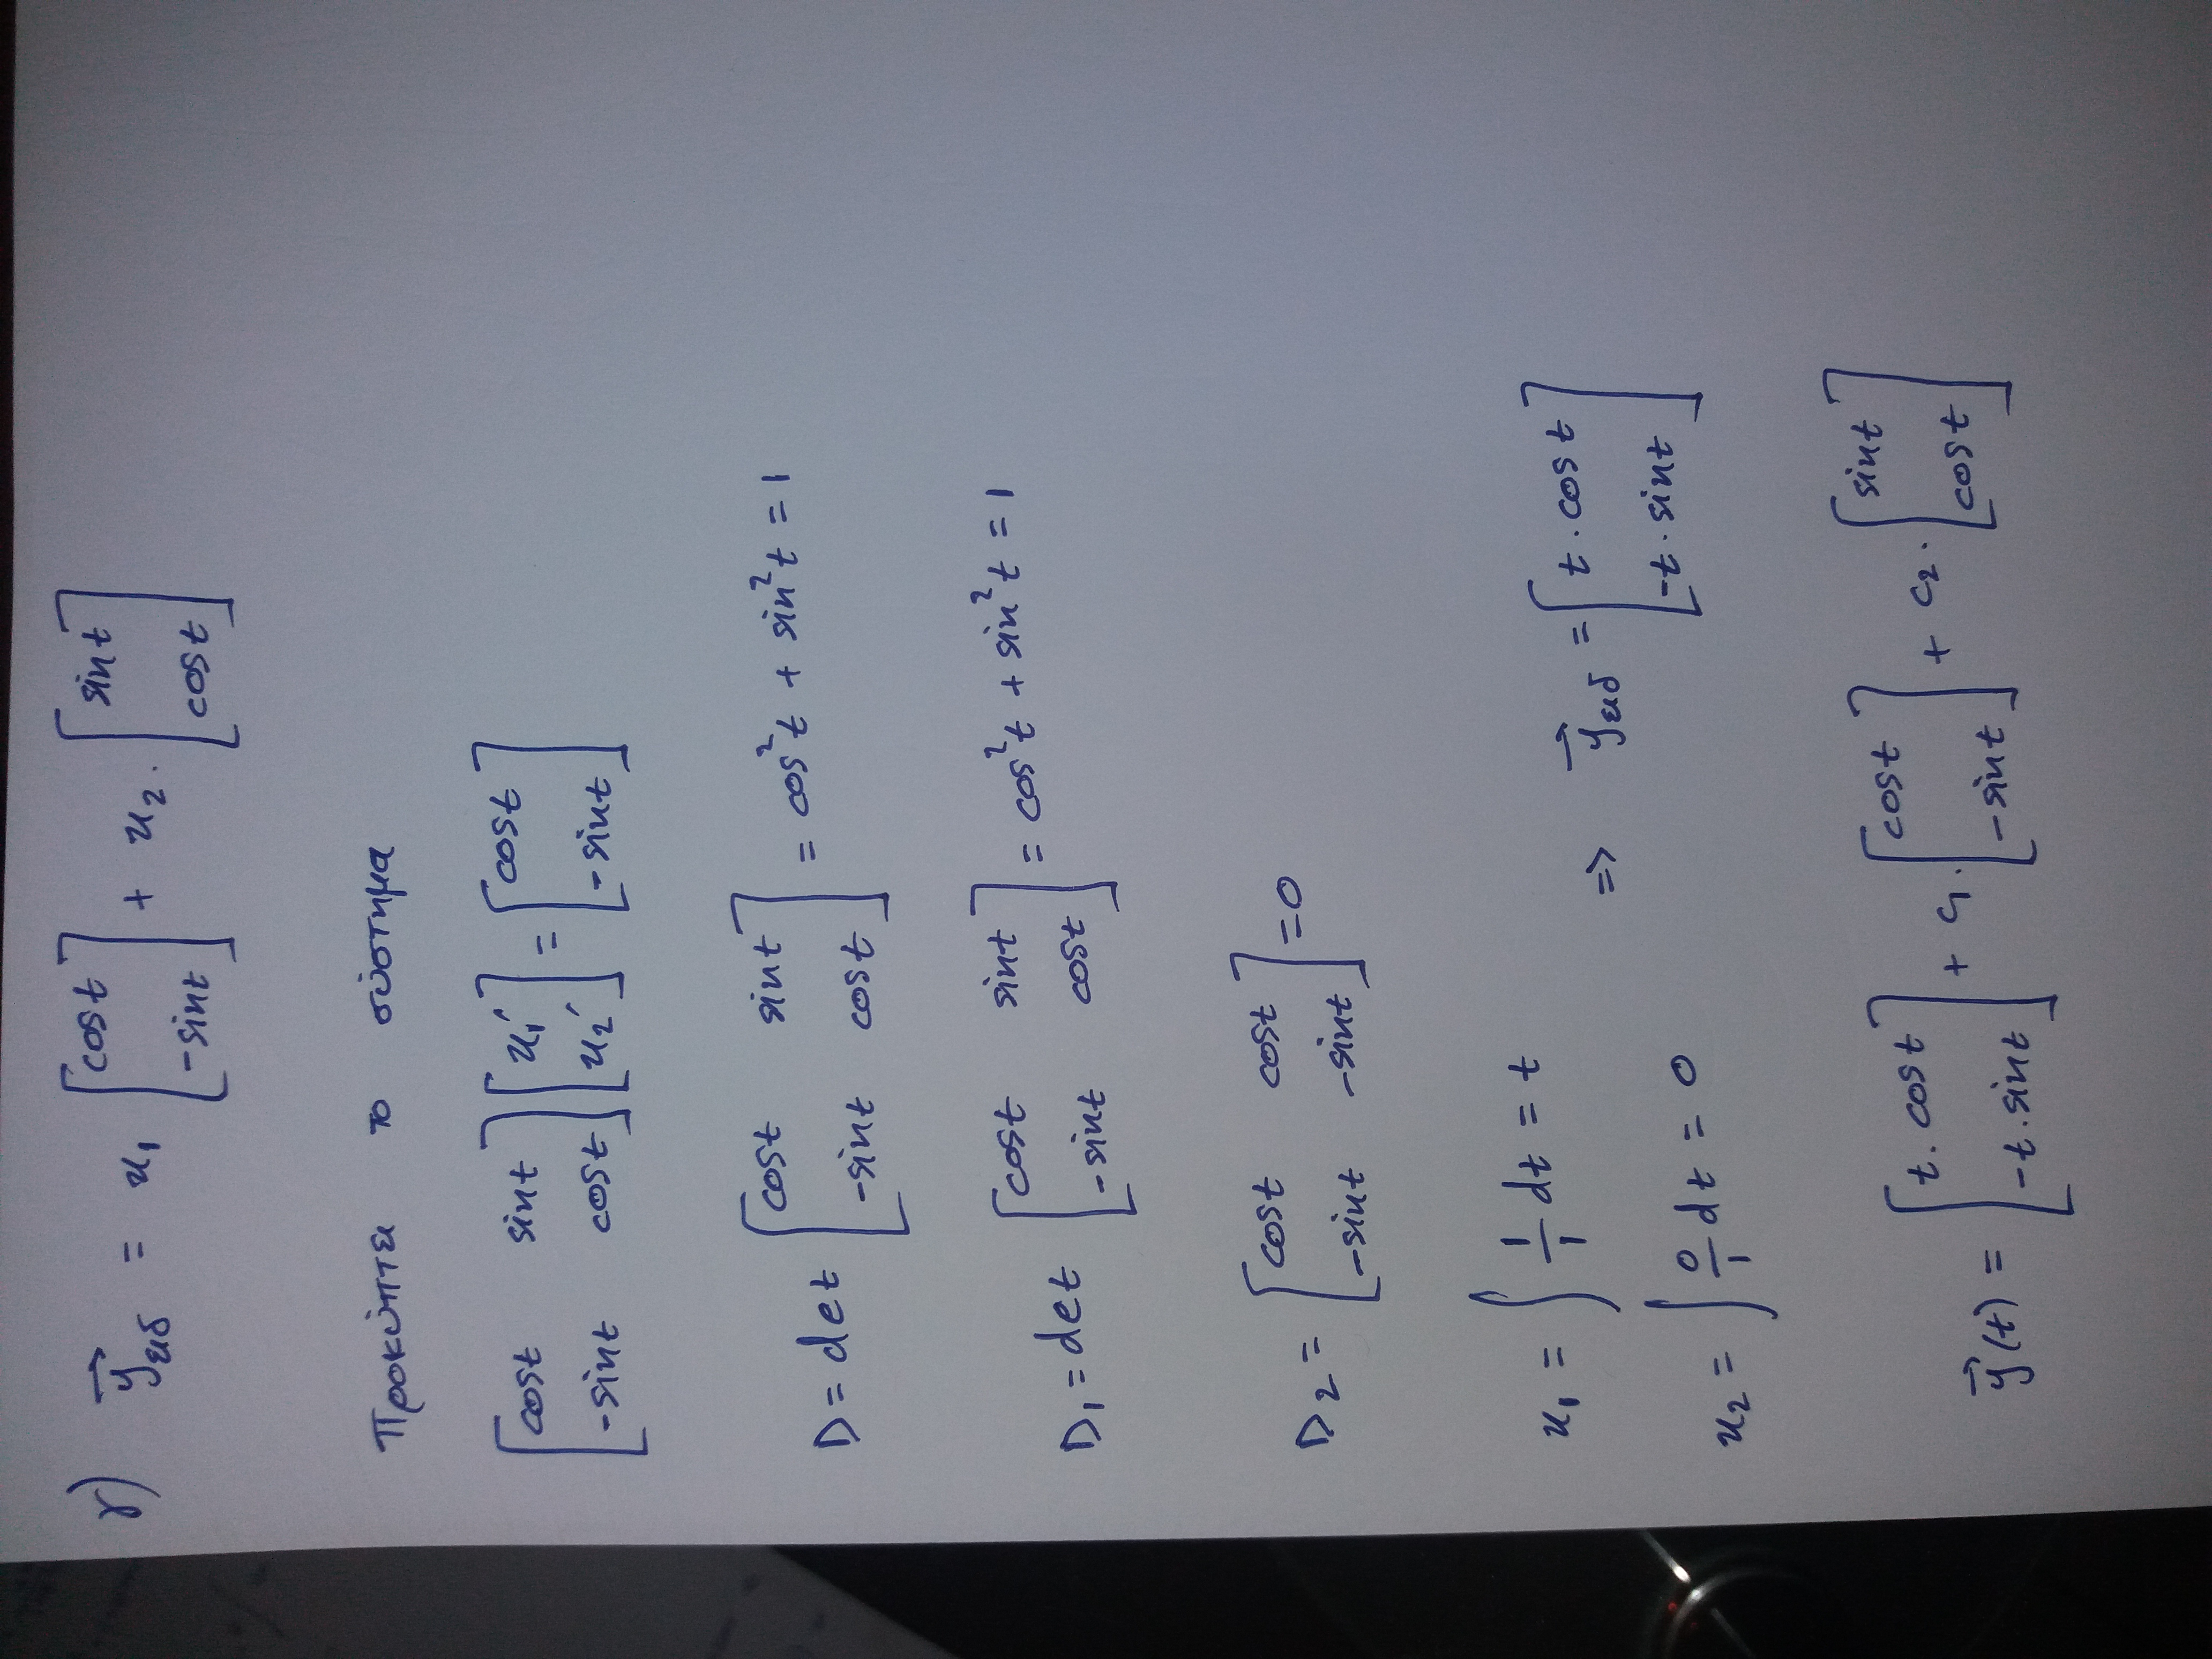 γ) y⃗_μδ = u₁ [cost; -sint] + u₂ · [sint; cost]
Προκύπτει το σύστημα
[cost sint; -sint cost] [u₁'; u₂'] = [cost; -sint]
D = det [cost sint; -sint cost] = cos²t + sin²t = 1
D₁ = det [cost sint; -sint cost] = cos²t + sin²t = 1
D₂ = [cost cost; -sint -sint] = 0
u₁ = ∫ 1/1 dt = t
u₂ = ∫ 0/1 dt = 0
⇒ y⃗_μδ = [t·cost; -t·sint]
y⃗(t) = [t·cost; -t·sint] + c₁ · [cost; -sint] + c₂ · [sint; cost]